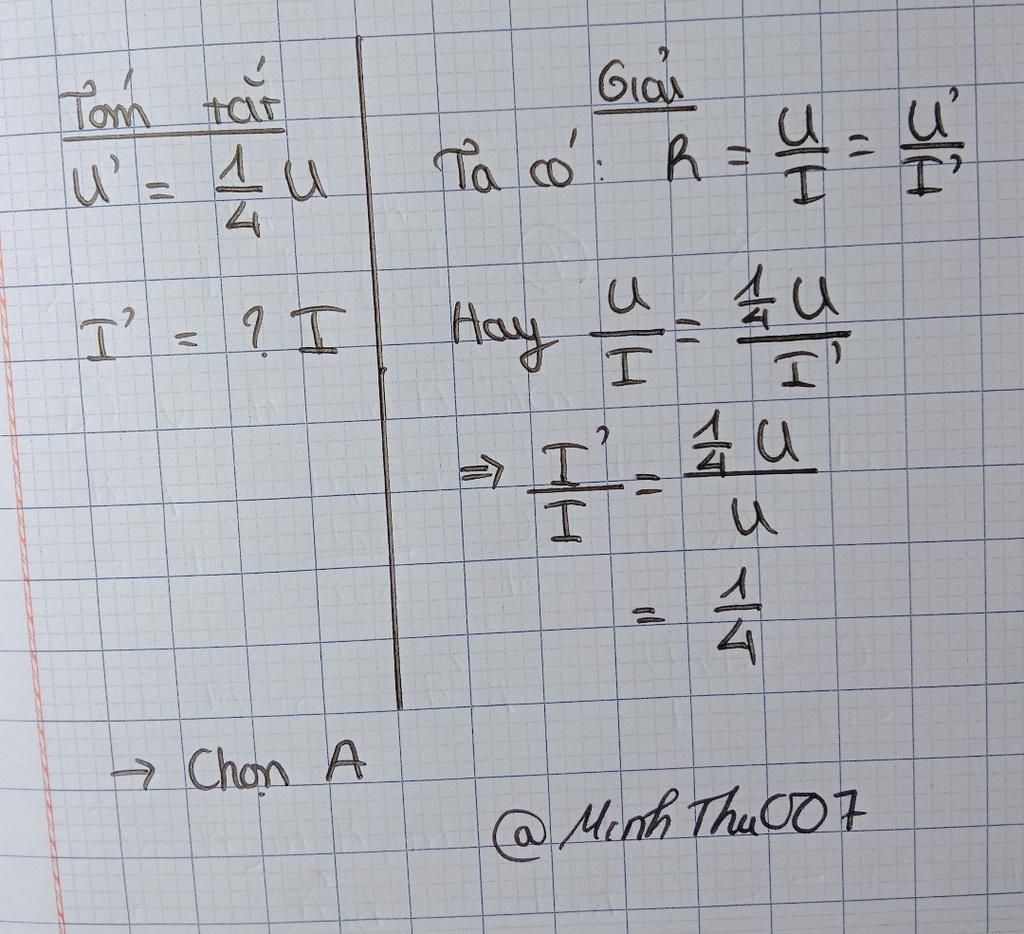 Tóm tắt
U' = 1/4 U
I' = ? I
Giải
Ta có: R = U/I = U'/I'
Hay U/I = 1/4 U / I'
⇒ I'/I = 1/4 U / U
= 1/4
→ Chọn A
@MinhThu007